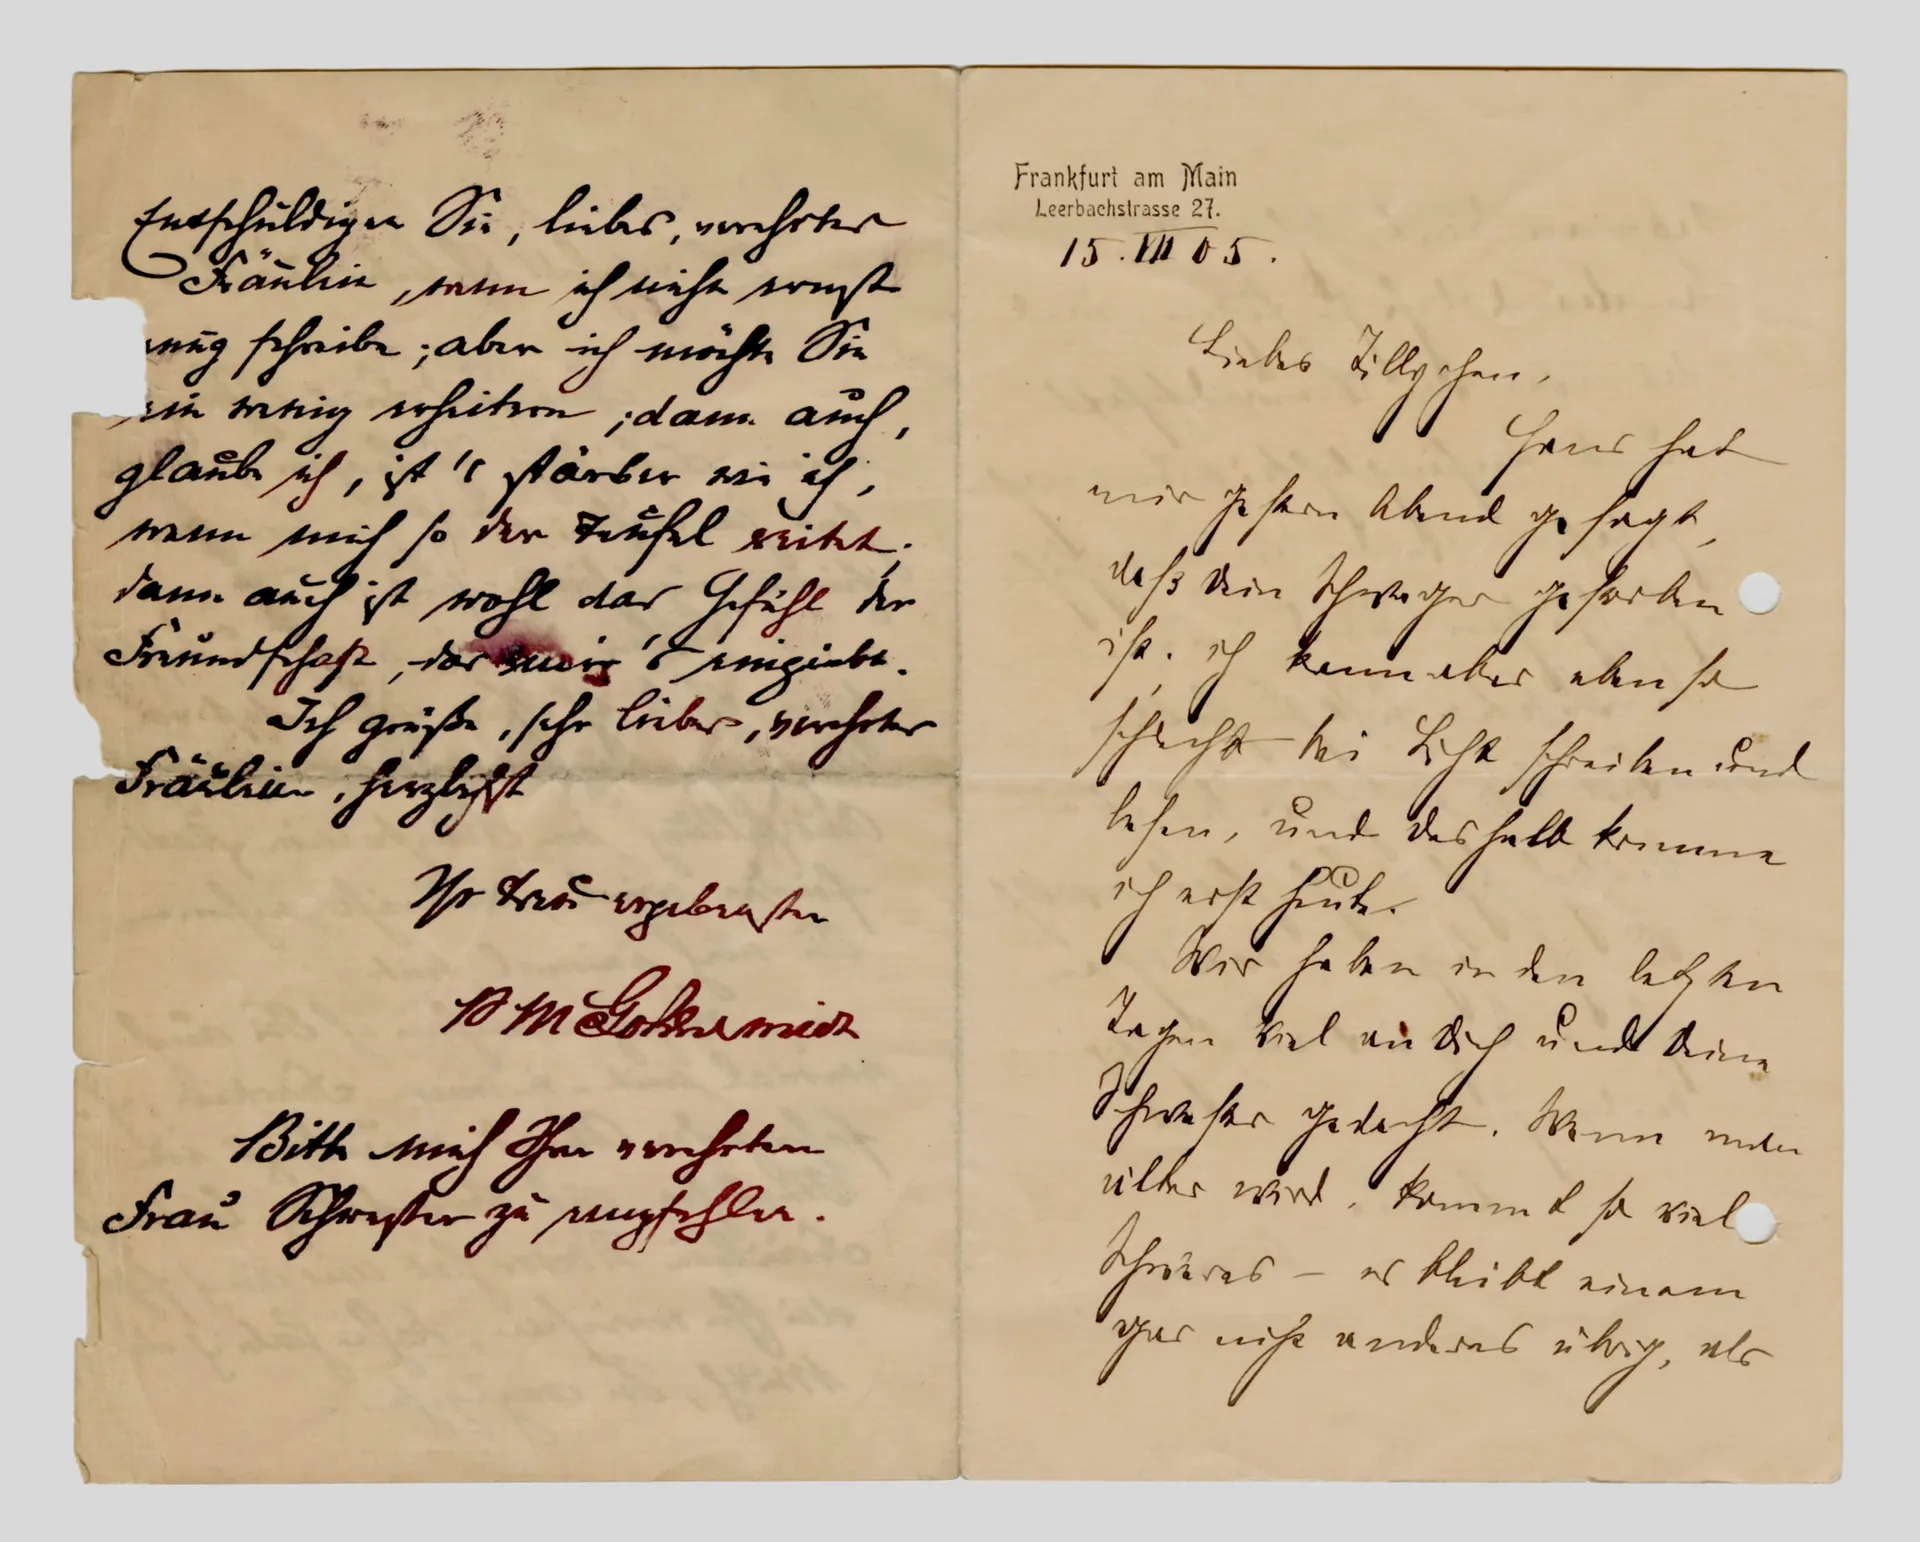 Entschuldigen Sie, liebes, verehrtes
Fräulein, wenn ich nicht ernst
nug schreibe; aber ich möchte Sie
ein wenig erheitern; dann auch,
glaube ich, ist's stärker wie ich,
wenn mich so der Teufel reitet;
dann auch ist wohl das Gefühl der
Freundschaft, das mir's eingiebt.
Ich grüße, sehr liebes, verehrtes
Fräulein, herzlichst
Ihr treu ergebenster
Bitte mich Ihrer verehrten
Frau Schwester zu empfehlen.
Frankfurt am Main
Leerbachstrasse 27.
15. VII 05.
Liebes Tillychen,
Hans hat
mir gestern Abend gesagt,
daß dein Schwager gestorben
ist. ich kann aber eben so
schlecht bei Licht schreiben und
lesen, und deshalb komme
ich erst heute.
Wir haben in den letzten
Tagen viel an Dich und Deine
Schwester gedacht. Wenn man
älter wird, kommt so viel
Schweres – es bleibt einem
gar nichts anderes übrig, als